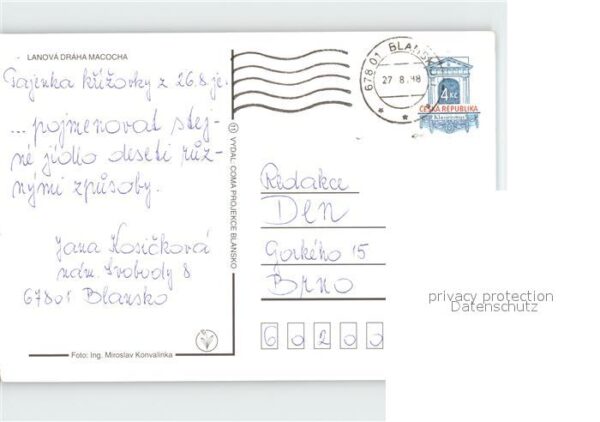 LANOVÁ DRÁHA MACOCHA
Tajenka křížovky z 26.8. je
...pojmenovat stej-
né jídlo deseti růz-
nými způsoby.
Jana Kosičková
nám. Svobody 8
67801 Blansko
Foto: Ing. Miroslav Konvalinka
VYDAL: COMA PROJEKCE BLANSKO
678 01 BLANSKO
27 8. 98
4 Kč
ČESKÁ REPUBLIKA
Klasicismus
Redakce
Den
Gorkého 15
Brno
60200
privacy protection
Datenschutz